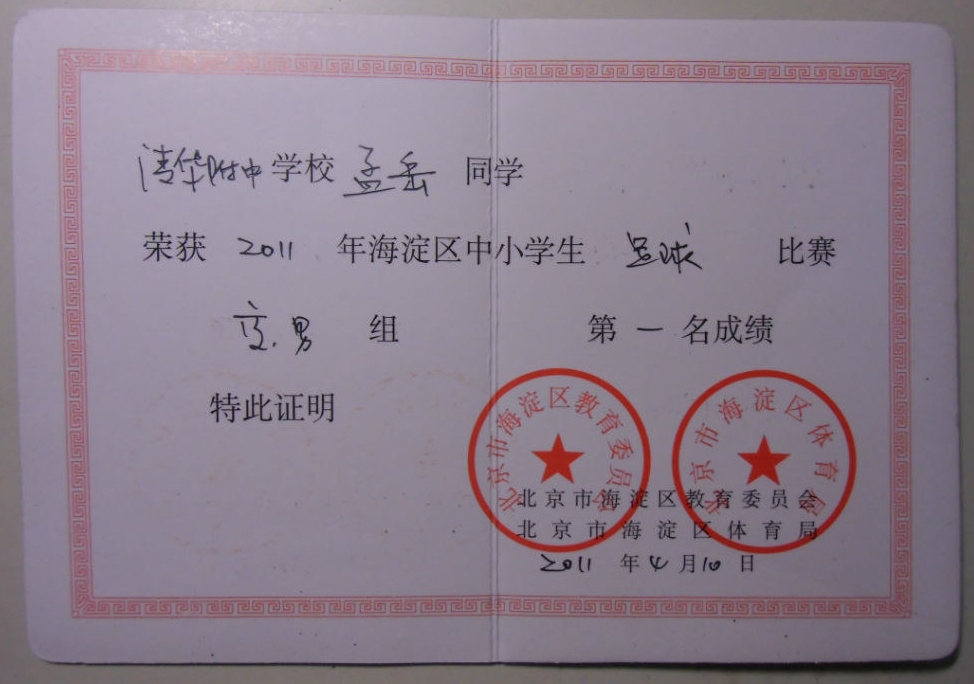 清华附中学校孟岳同学
荣获 2011 年海淀区中小学生 足球 比赛
高.男 组 第 一 名成绩
特此证明
北京市海淀区教育委员会
北京市海淀区体育局
北京市海淀区教育委员会
北京市海淀区体育局
2011 年 4 月 10 日